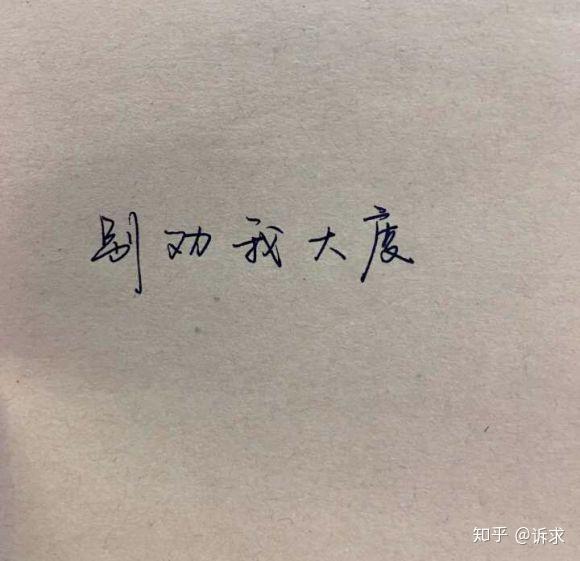 别劝我大度
知乎 @诉求